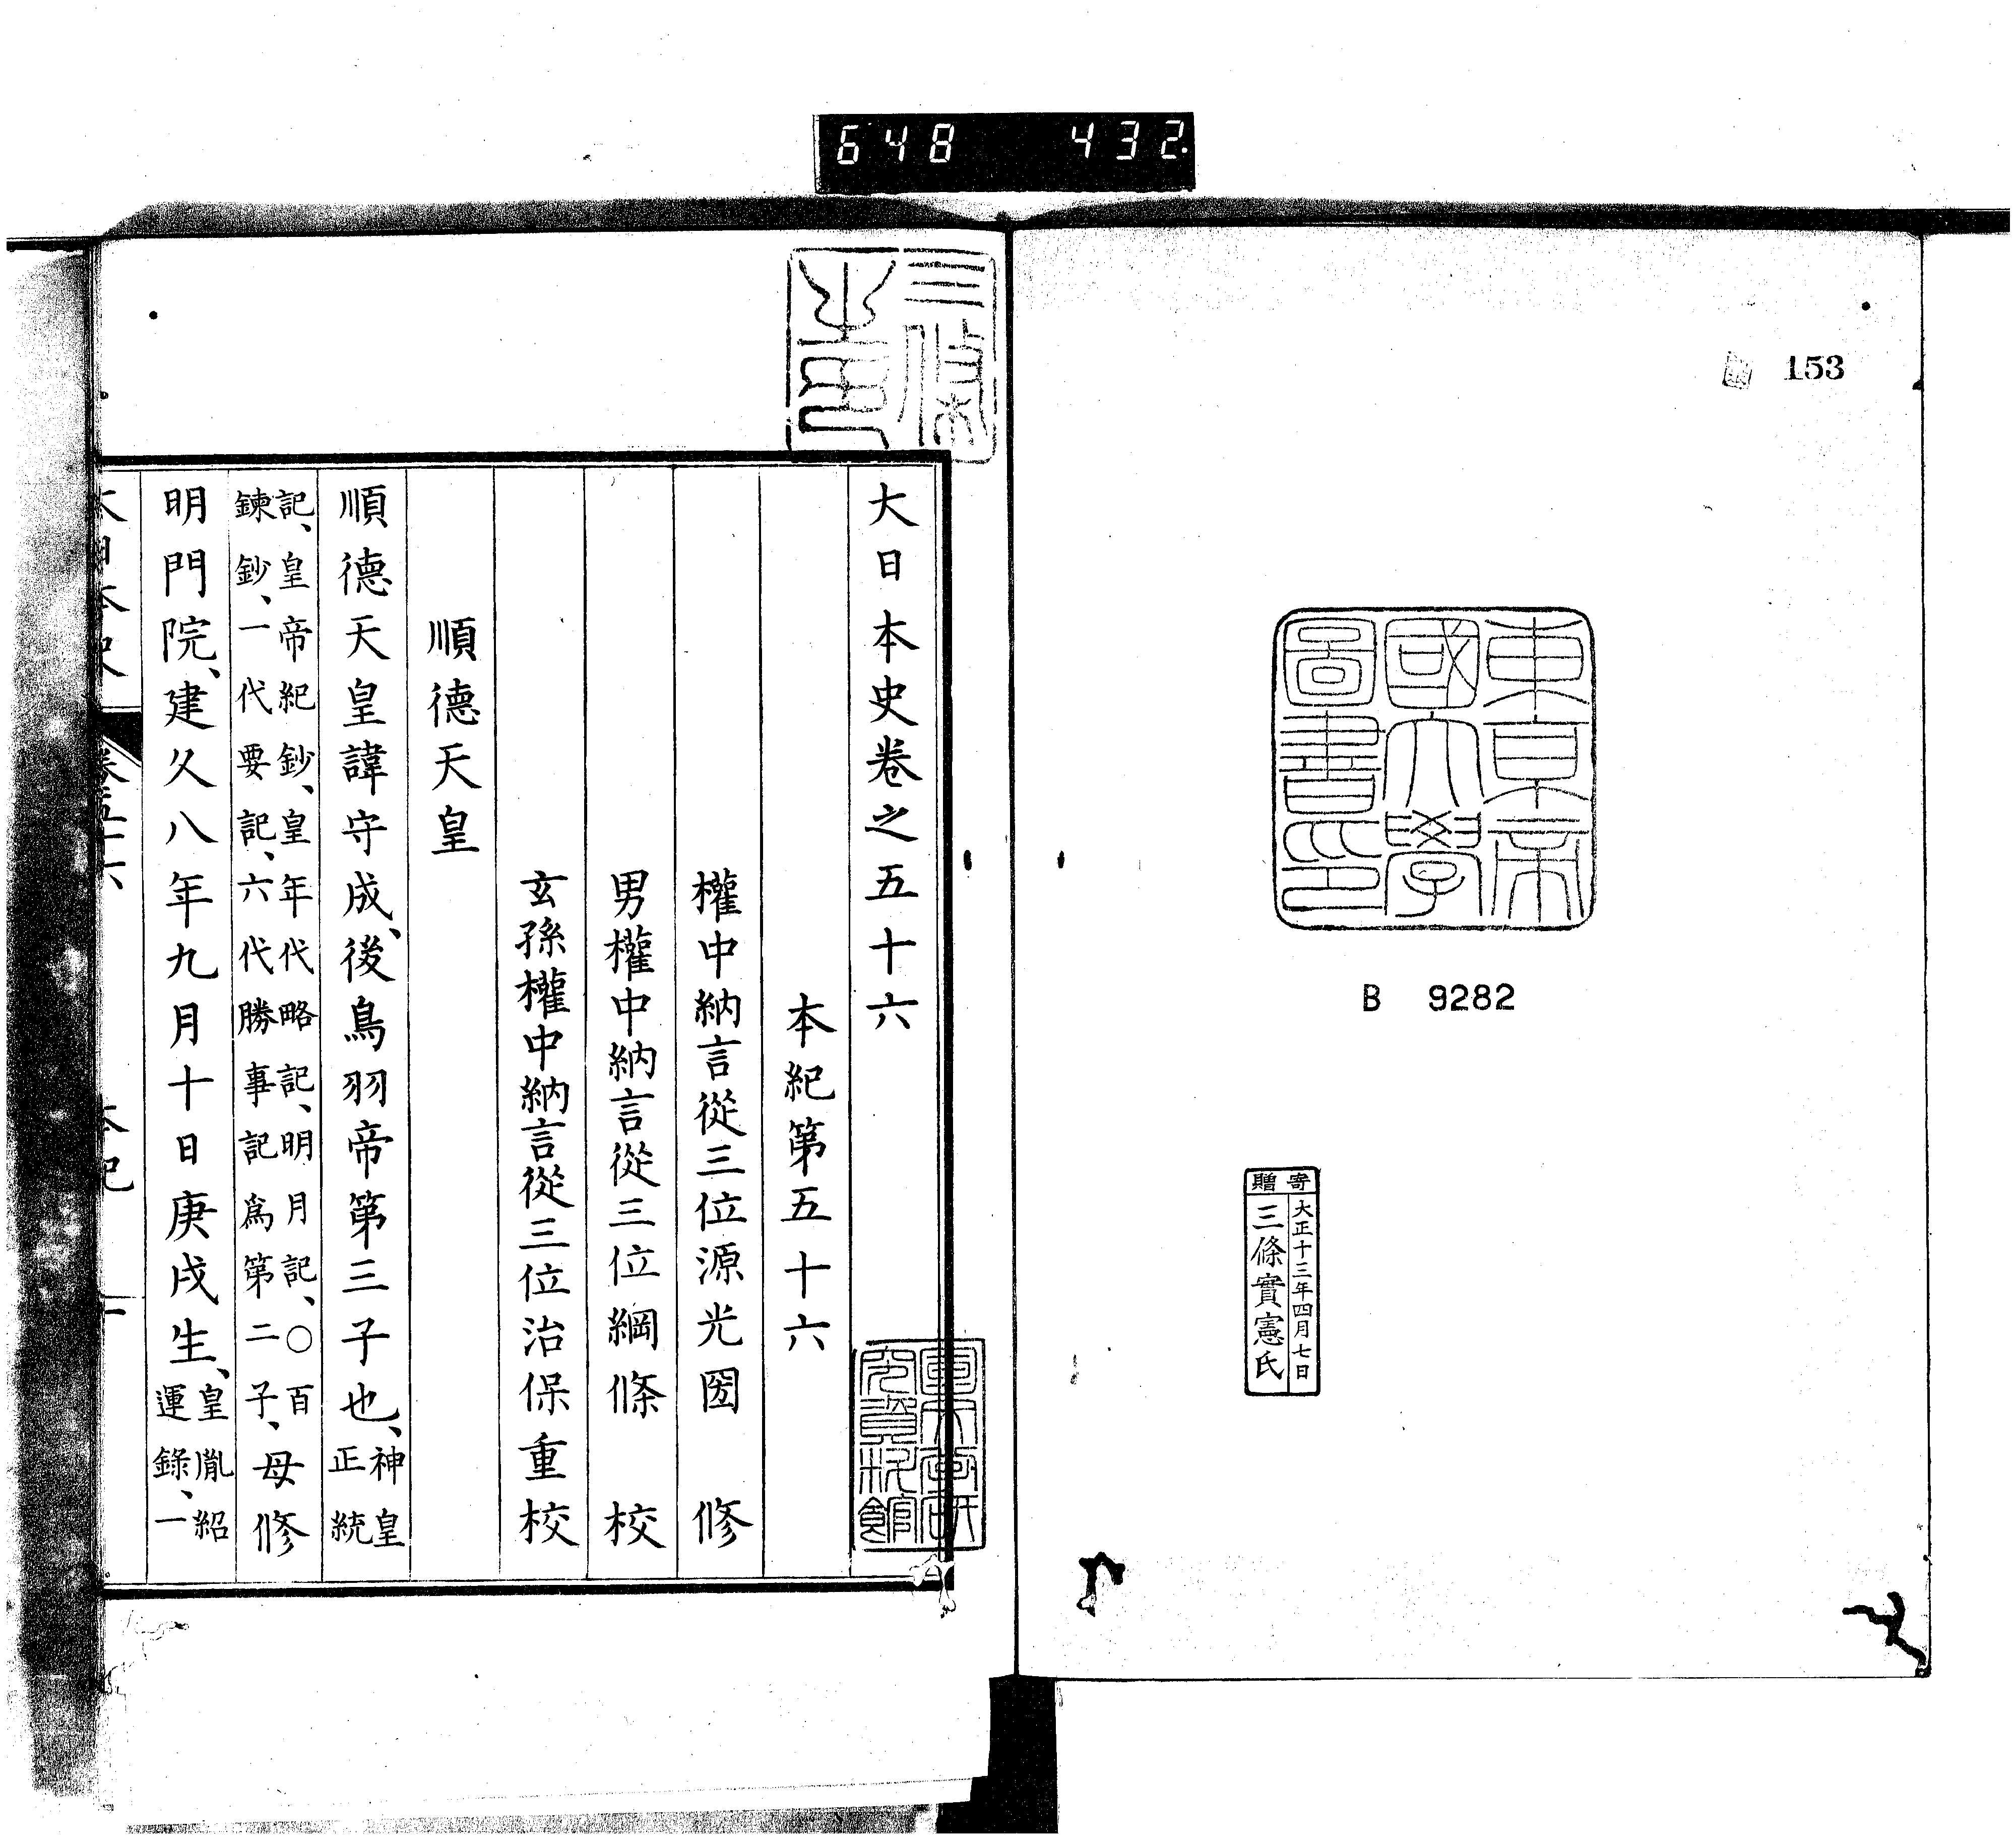 648 432
153
東京帝
國大學
圖書印
B 9282
寄贈
大正十三年四月七日
三條實憲氏
大日本史卷之五十六
本紀第五十六
權中納言從三位源光圀 修
男權中納言從三位綱條 校
玄孫權中納言從三位治保重校
順德天皇
順德天皇諱守成、後鳥羽帝第三子也、神皇
正統
記、皇帝紀鈔、皇年代略記、明月記、○百
鍊鈔、一代要記、六代勝事記爲第二子、母修
明門院、建久八年九月十日庚戌生、皇胤紹
運錄、一